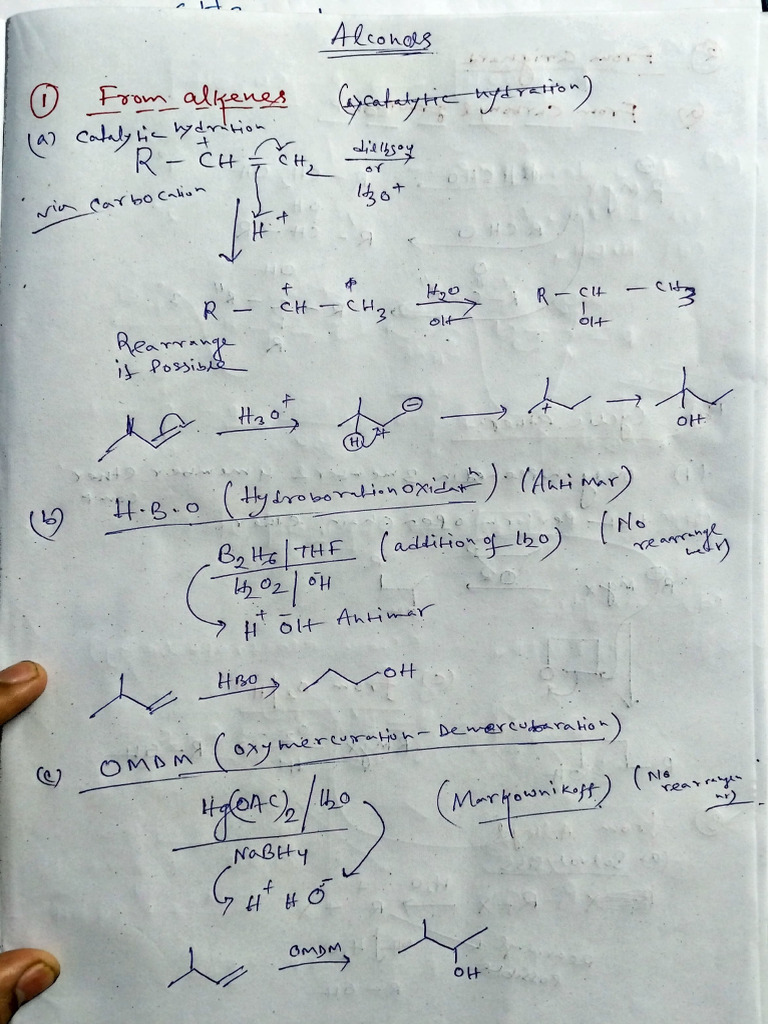 Alcohols
① From alkenes (a) catalytic hydration)
(a) catalytic hydration
R - CH = CH2 dil H2SO4
or
H3O+
via carbocation
H+
R - CH - CH3 H2O R - CH - CH3
+ OH OH
Rearrange
if possible
H3O+
H
OH
(b) H.B.O (Hydroboration oxidatn) (Anti Mar)
B2H6 / THF (addition of H2O) (No rearrangement)
H2O2 / ŌH
H+ ŌH Antimar
HBO OH
(c) OMDM (oxymercuration - Demercuration)
Hg(OAC)2 / H2O (Markownikoff) (No rearrangement)
NaBH4
H+ HO-
OMDM
OH